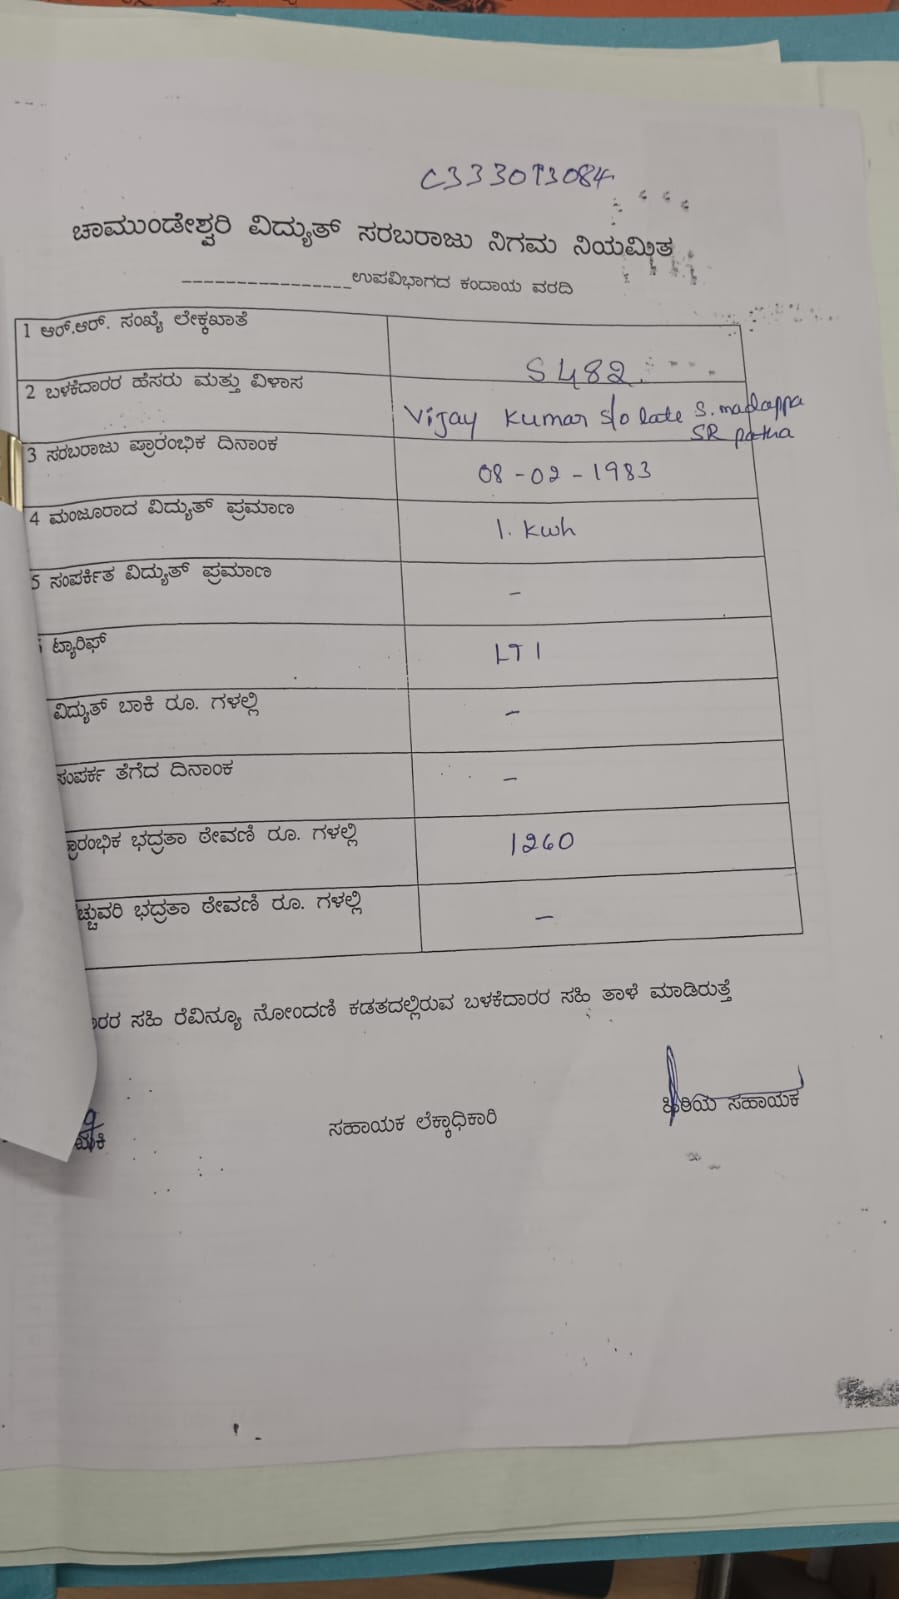 C333013084
ಚಾಮುಂಡೇಶ್ವರಿ ವಿದ್ಯುತ್ ಸರಬರಾಜು ನಿಗಮ ನಿಯಮಿತ
________________ಉಪವಿಭಾಗದ ಕಂದಾಯ ವರದಿ
1 ಆರ್.ಆರ್. ಸಂಖ್ಯೆ ಲೆಕ್ಕಖಾತೆ S482
2 ಬಳಕೆದಾರರ ಹೆಸರು ಮತ್ತು ವಿಳಾಸ Vijay Kumar S/o late S. madappa
SR patna
3 ಸರಬರಾಜು ಪ್ರಾರಂಭಿಕ ದಿನಾಂಕ 08-02-1983
4 ಮಂಜೂರಾದ ವಿದ್ಯುತ್ ಪ್ರಮಾಣ 1. kwh
5 ಸಂಪರ್ಕಿತ ವಿದ್ಯುತ್ ಪ್ರಮಾಣ -
ಟ್ಯಾರಿಫ್ LT1
ವಿದ್ಯುತ್ ಬಾಕಿ ರೂ. ಗಳಲ್ಲಿ -
ಸಂಪರ್ಕ ತೆಗೆದ ದಿನಾಂಕ -
ಪ್ರಾರಂಭಿಕ ಭದ್ರತಾ ಠೇವಣಿ ರೂ. ಗಳಲ್ಲಿ 1260
ಚ್ಚುವರಿ ಭದ್ರತಾ ಠೇವಣಿ ರೂ. ಗಳಲ್ಲಿ -
ಸಹಿ ರೆವಿನ್ಯೂ ನೋಂದಣಿ ಕಡತದಲ್ಲಿರುವ ಬಳಕೆದಾರರ ಸಹಿ ತಾಳೆ ಮಾಡಿರುತ್ತೆ
ಸಹಾಯಕ ಲೆಕ್ಕಾಧಿಕಾರಿ ಹಿರಿಯ ಸಹಾಯಕ